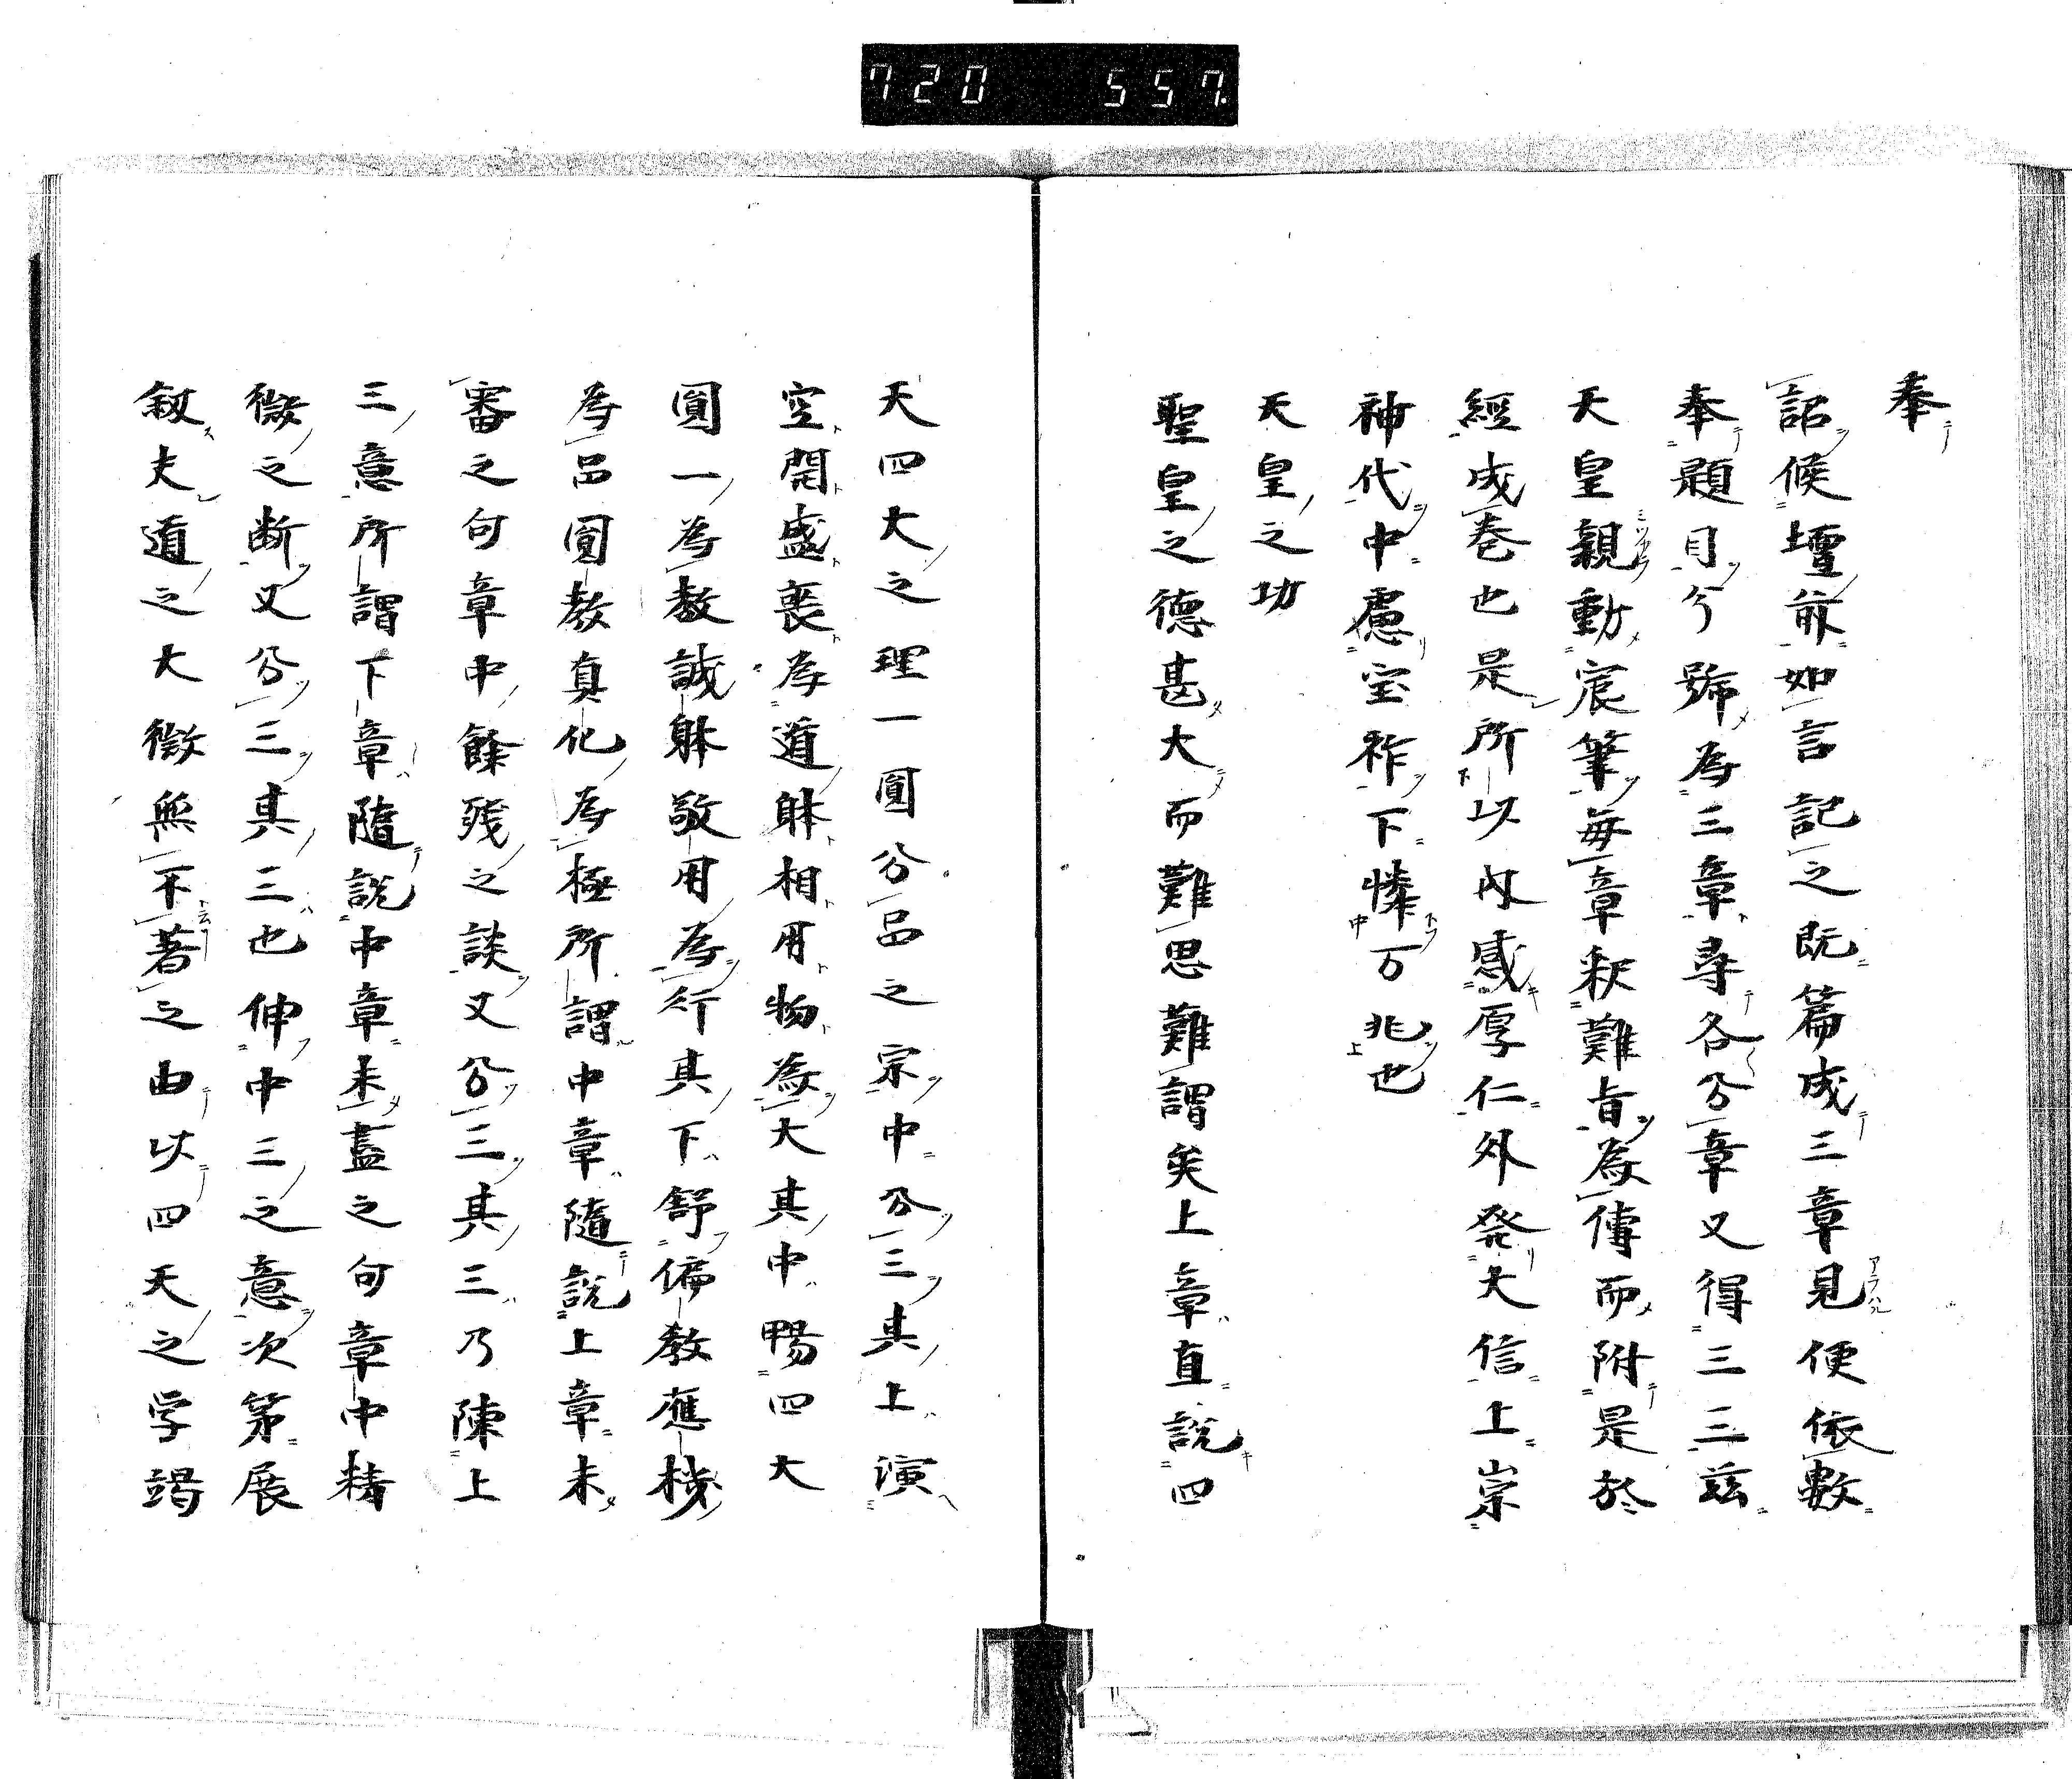 720 557
奉
詔候壇前如言記之既篇成三章見便依數
奉題目兮號為三章尋各分章又得三三茲
天皇親動宸筆每章釈難旨為傳而附是於
經成卷也是所以内感厚仁外発大信上崇
神代中慮宝祚下憐万兆也
天皇之功
聖皇之德甚大而難思難謂矣上章直說四
天四大之理一圓分品之宗中分三其上演
空開盛喪為道躰相用物為大其中暢四大
圓一為教誠躰敬用為行其下舒偏教應機
為品圓教真化為極所謂中章隨說上章未
審之句章中餘殘之談又分三其三乃陳上
三意所謂下章隨說中章未盡之句章中精
微之断又分三其三也伸中三之意次第展
叙夫道之大微無不著之由以四天之学竭